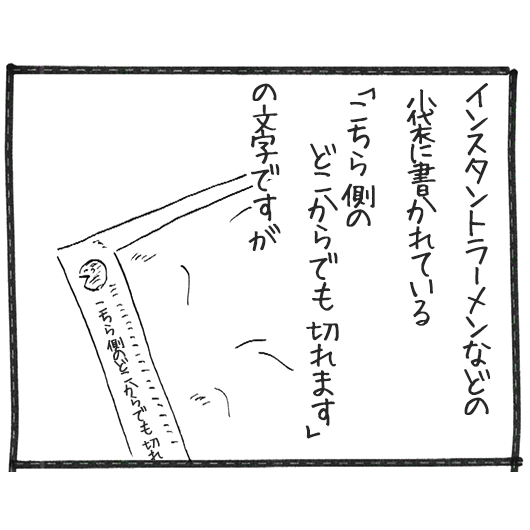 インスタントラーメンなどの
小袋に書かれている
「こちら側の
どこからでも切れます」
の文字ですが
こちら側のどこからでも切れ